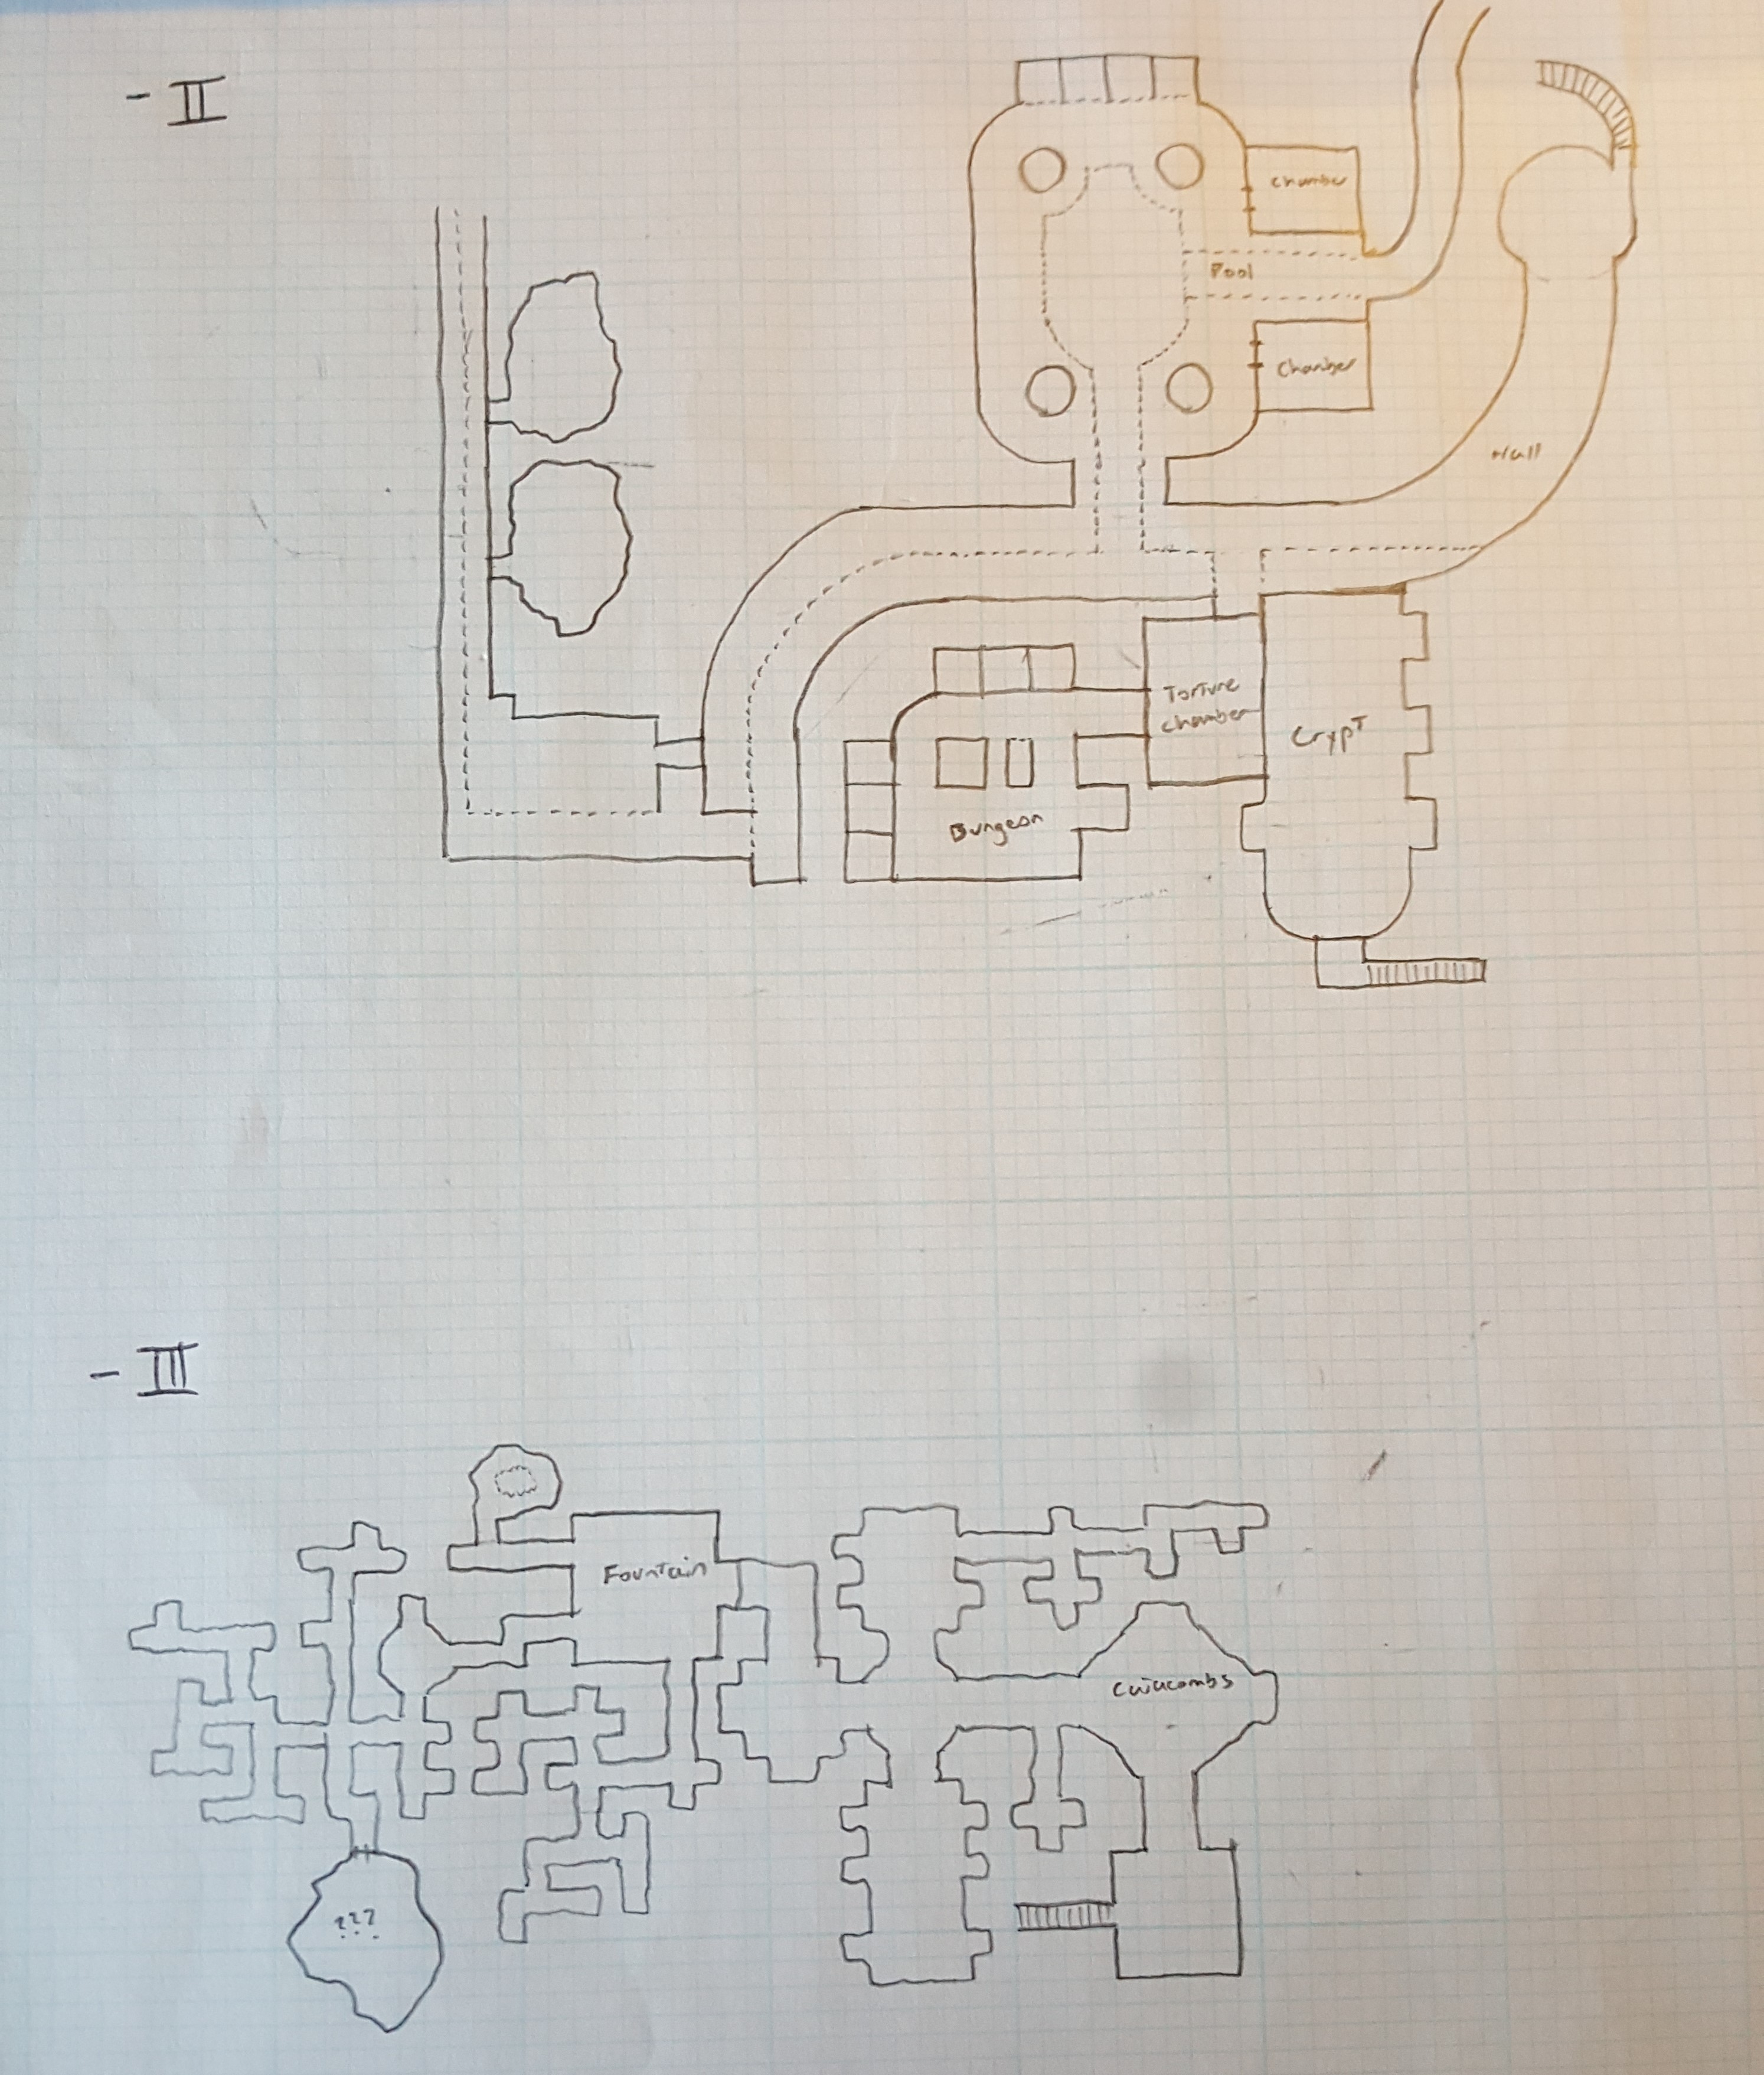 - II
chamber
Pool
Chamber
Hall
Torture
chamber
Crypt
Dungeon
- III
Fountain
Catacombs
???